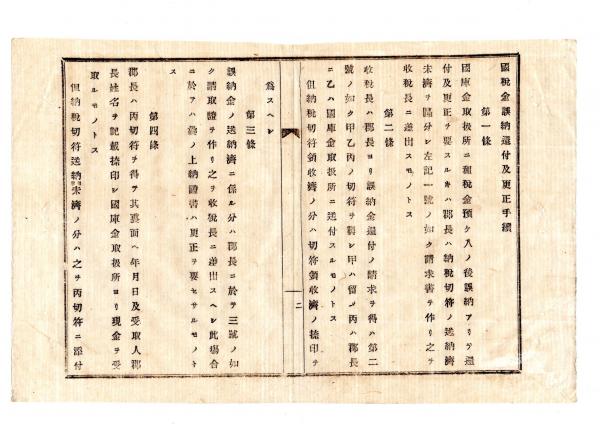 國税金誤納還付及更正手續
第一條
國庫金取扱所ニ租税金預ケ入ノ後誤納アリテ還
付及更正ヲ要スルキハ郡長ハ納税切符ノ送納濟
未濟ヲ區分シ左記一號ノ如ク請求書ヲ作リ之ヲ
收税長ニ差出スモノトス
第二條
收税長ハ郡長ヨリ誤納金還付ノ請求ヲ得ハ第二
號ノ如ク甲乙丙ノ切符ヲ製シ甲ハ留メ丙ハ郡長
ニ乙ハ國庫金取扱所ニ送付スルモノトス
但納税切符領收濟ノ分ハ切符領收濟ノ捺印ヲ
二
爲スヘシ
第三條
誤納金ノ送納濟ニ係ル分ハ郡長ニ於テ三號ノ如
ク請取證ヲ作リ之ヲ收税長ニ差出スヘシ此場合
ニ於テハ最ノ上納證書ハ更正ヲ要セサルモノト
ス
第四條
郡長ハ丙切符ヲ得テ其裏面ヘ年月日及受取人郡
長姓名ヲ記載捺印シ國庫金取扱所ヨリ現金ヲ受
取ルモノトス
但納税切符送納未濟ノ分ハ之ヲ丙切符ニ添付